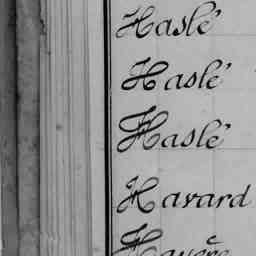 Haslé
Haslé
Haslé
Havard